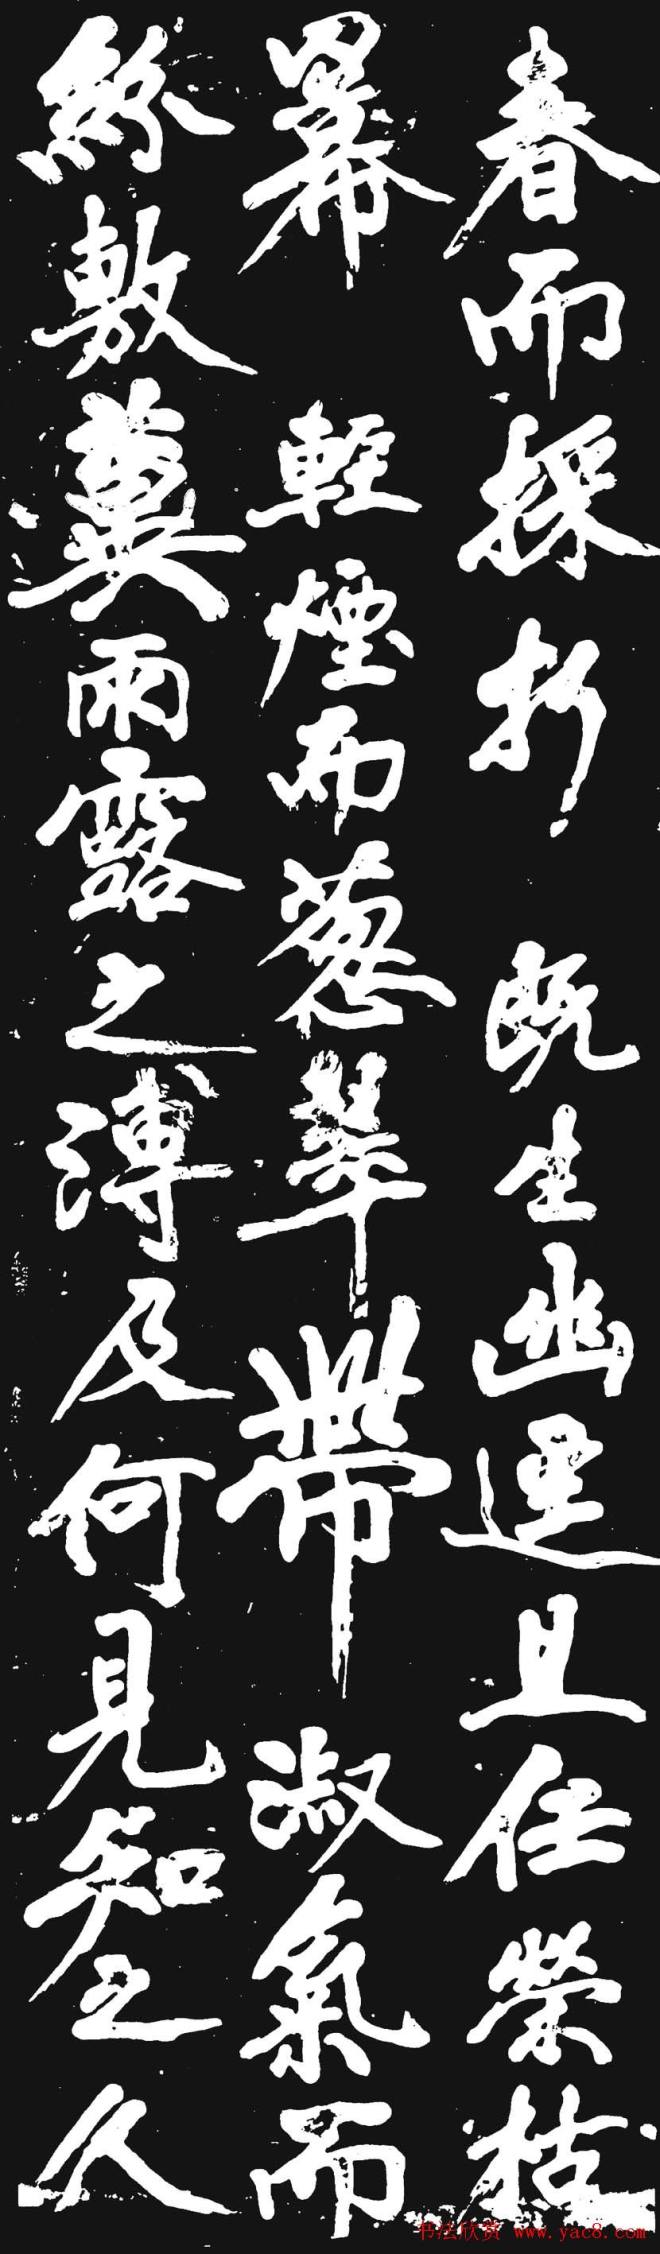 春而採折既生幽遠且任榮枯
羃輕煙而葱翠帶淑氣而
紛敷冀雨露之溥及何見知之久
书法欣赏 www.yac8.com